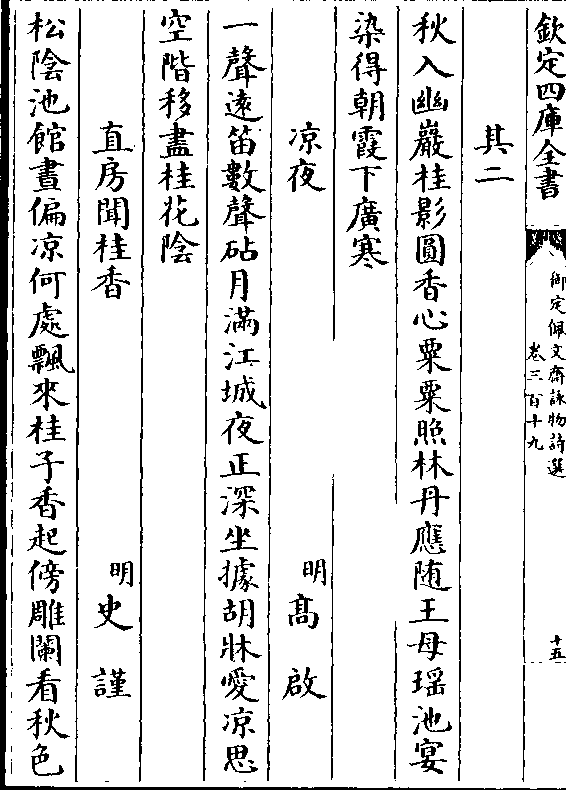 欽定四庫全書
御定佩文齋詠物詩選
卷三百十九
十五
其二
秋入幽巖桂影圓香心粟粟照林丹應随王母瑶池宴
染得朝霞下廣寒
凉夜
明髙啟
一聲遠笛數聲砧月滿江城夜正深坐據胡牀愛凉思
空階移盡桂花陰
直房聞桂香
明史謹
松陰池館晝偏凉何處飄來桂子香起傍雕闌看秋色